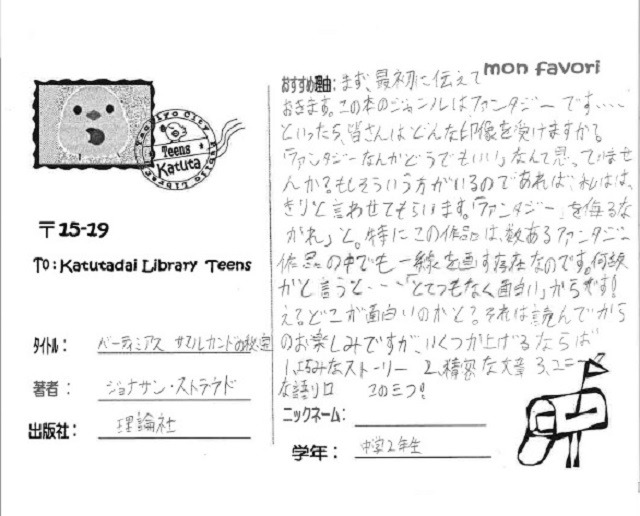 Yachiyo City Public Library
Teens
Katuta
〒15-19
To: Katutadai Library Teens
タイトル: バーティミアス サマルカンドの秘宝
著者: ジョナサン・ストラウド
出版社: 理論社
mon favori
おすすめ理由: まず、最初に伝えて
おきます。この本のジャンルはファンタジーです……
といったら、皆さんはどんな印象を受けますか?
「ファンタジーなんかどうでもいい」なんて思っていませ
んか?もしそういう方がいるのであれば、私ははっ
きりと言わせてもらいます。「ファンタジー」を侮るな
かれ」と。特にこの作品は、数あるファンタジー
作品の中でも一線を画す存在なのです。何故
かと言うと…「とてつもなく面白い」からです!
え?どこが面白いのかと?それは読んでから
のお楽しみですが、いくつか上げるならば
1.巧みなストーリー 2.精密な文章 3.ユニーク
な語り口 この三つ!
ニックネーム:
学年: 中学2年生